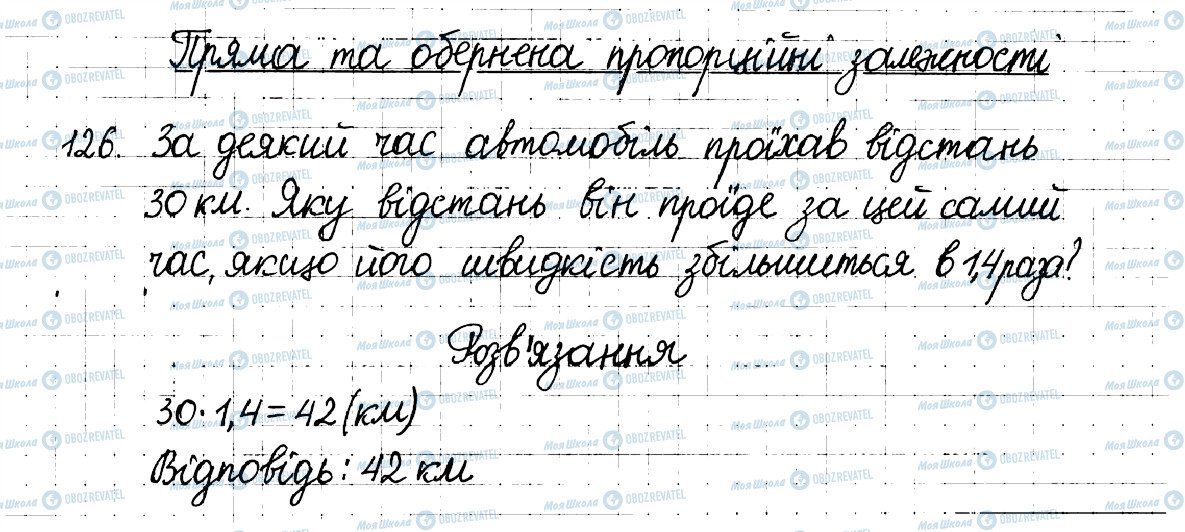 Пряма та обернена пропорційні залежності
126. За деякий час автомобіль проїхав відстань
30 км. Яку відстань він проїде за цей самий
час, якщо його швидкість збільшиться в 1,4 раза?
Розв'язання
30 · 1,4 = 42 (км)
Відповідь: 42 км